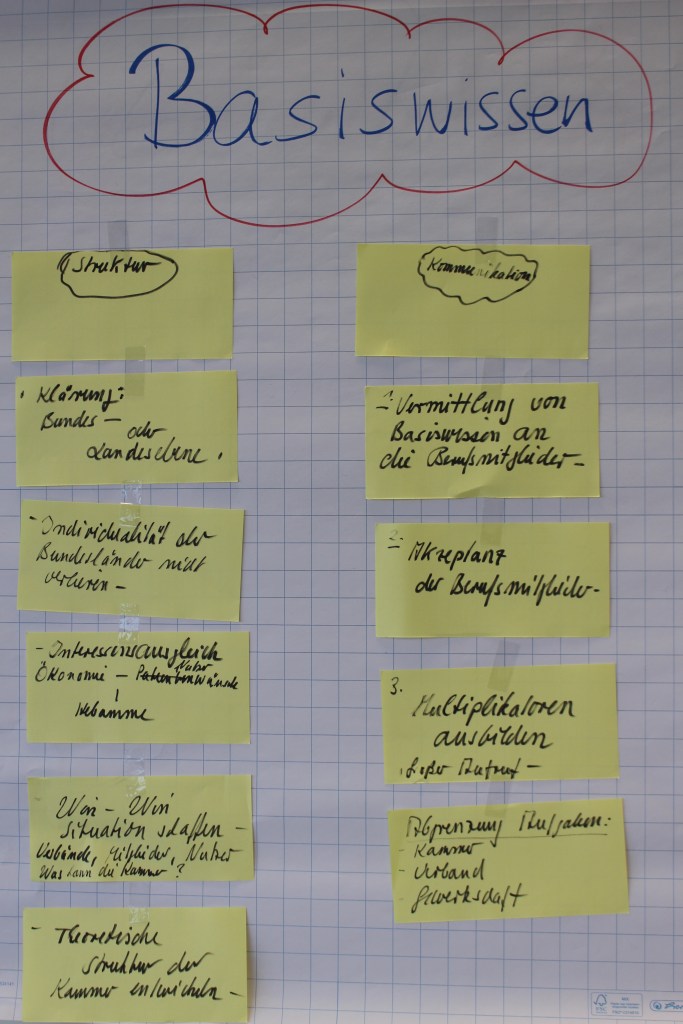 Basiswissen
Struktur
• Klärung:
Bundes –
oder
Landesebene.
- Individualität der
Bundesländer nicht
verlieren –
- Interessensausgleich
Ökonomie – Nutzer
wünsche
Hebamme
Win – Win
Situation schaffen –
Verbände, Mitglieder, Nutzer
Was kann die Kammer?
- Theoretische
Struktur der
Kammer entwickeln –
Kommunikation
1. Vermittlung von
Basiswissen an
die Berufsmitglieder –
2. Akzeptanz
der Berufsmitglieder –
3.
Multiplikatoren
ausbilden
Abgrenzung Aufgaben:
- Kammer
- Verband
- Gewerkschaft
FSC